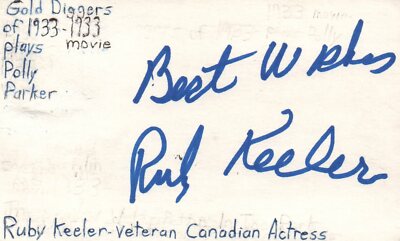 Gold Diggers
of 1933-1933
plays movie
Polly
Parker
Best Wishes
Ruby Keeler
Ruby Keeler-veteran Canadian Actress